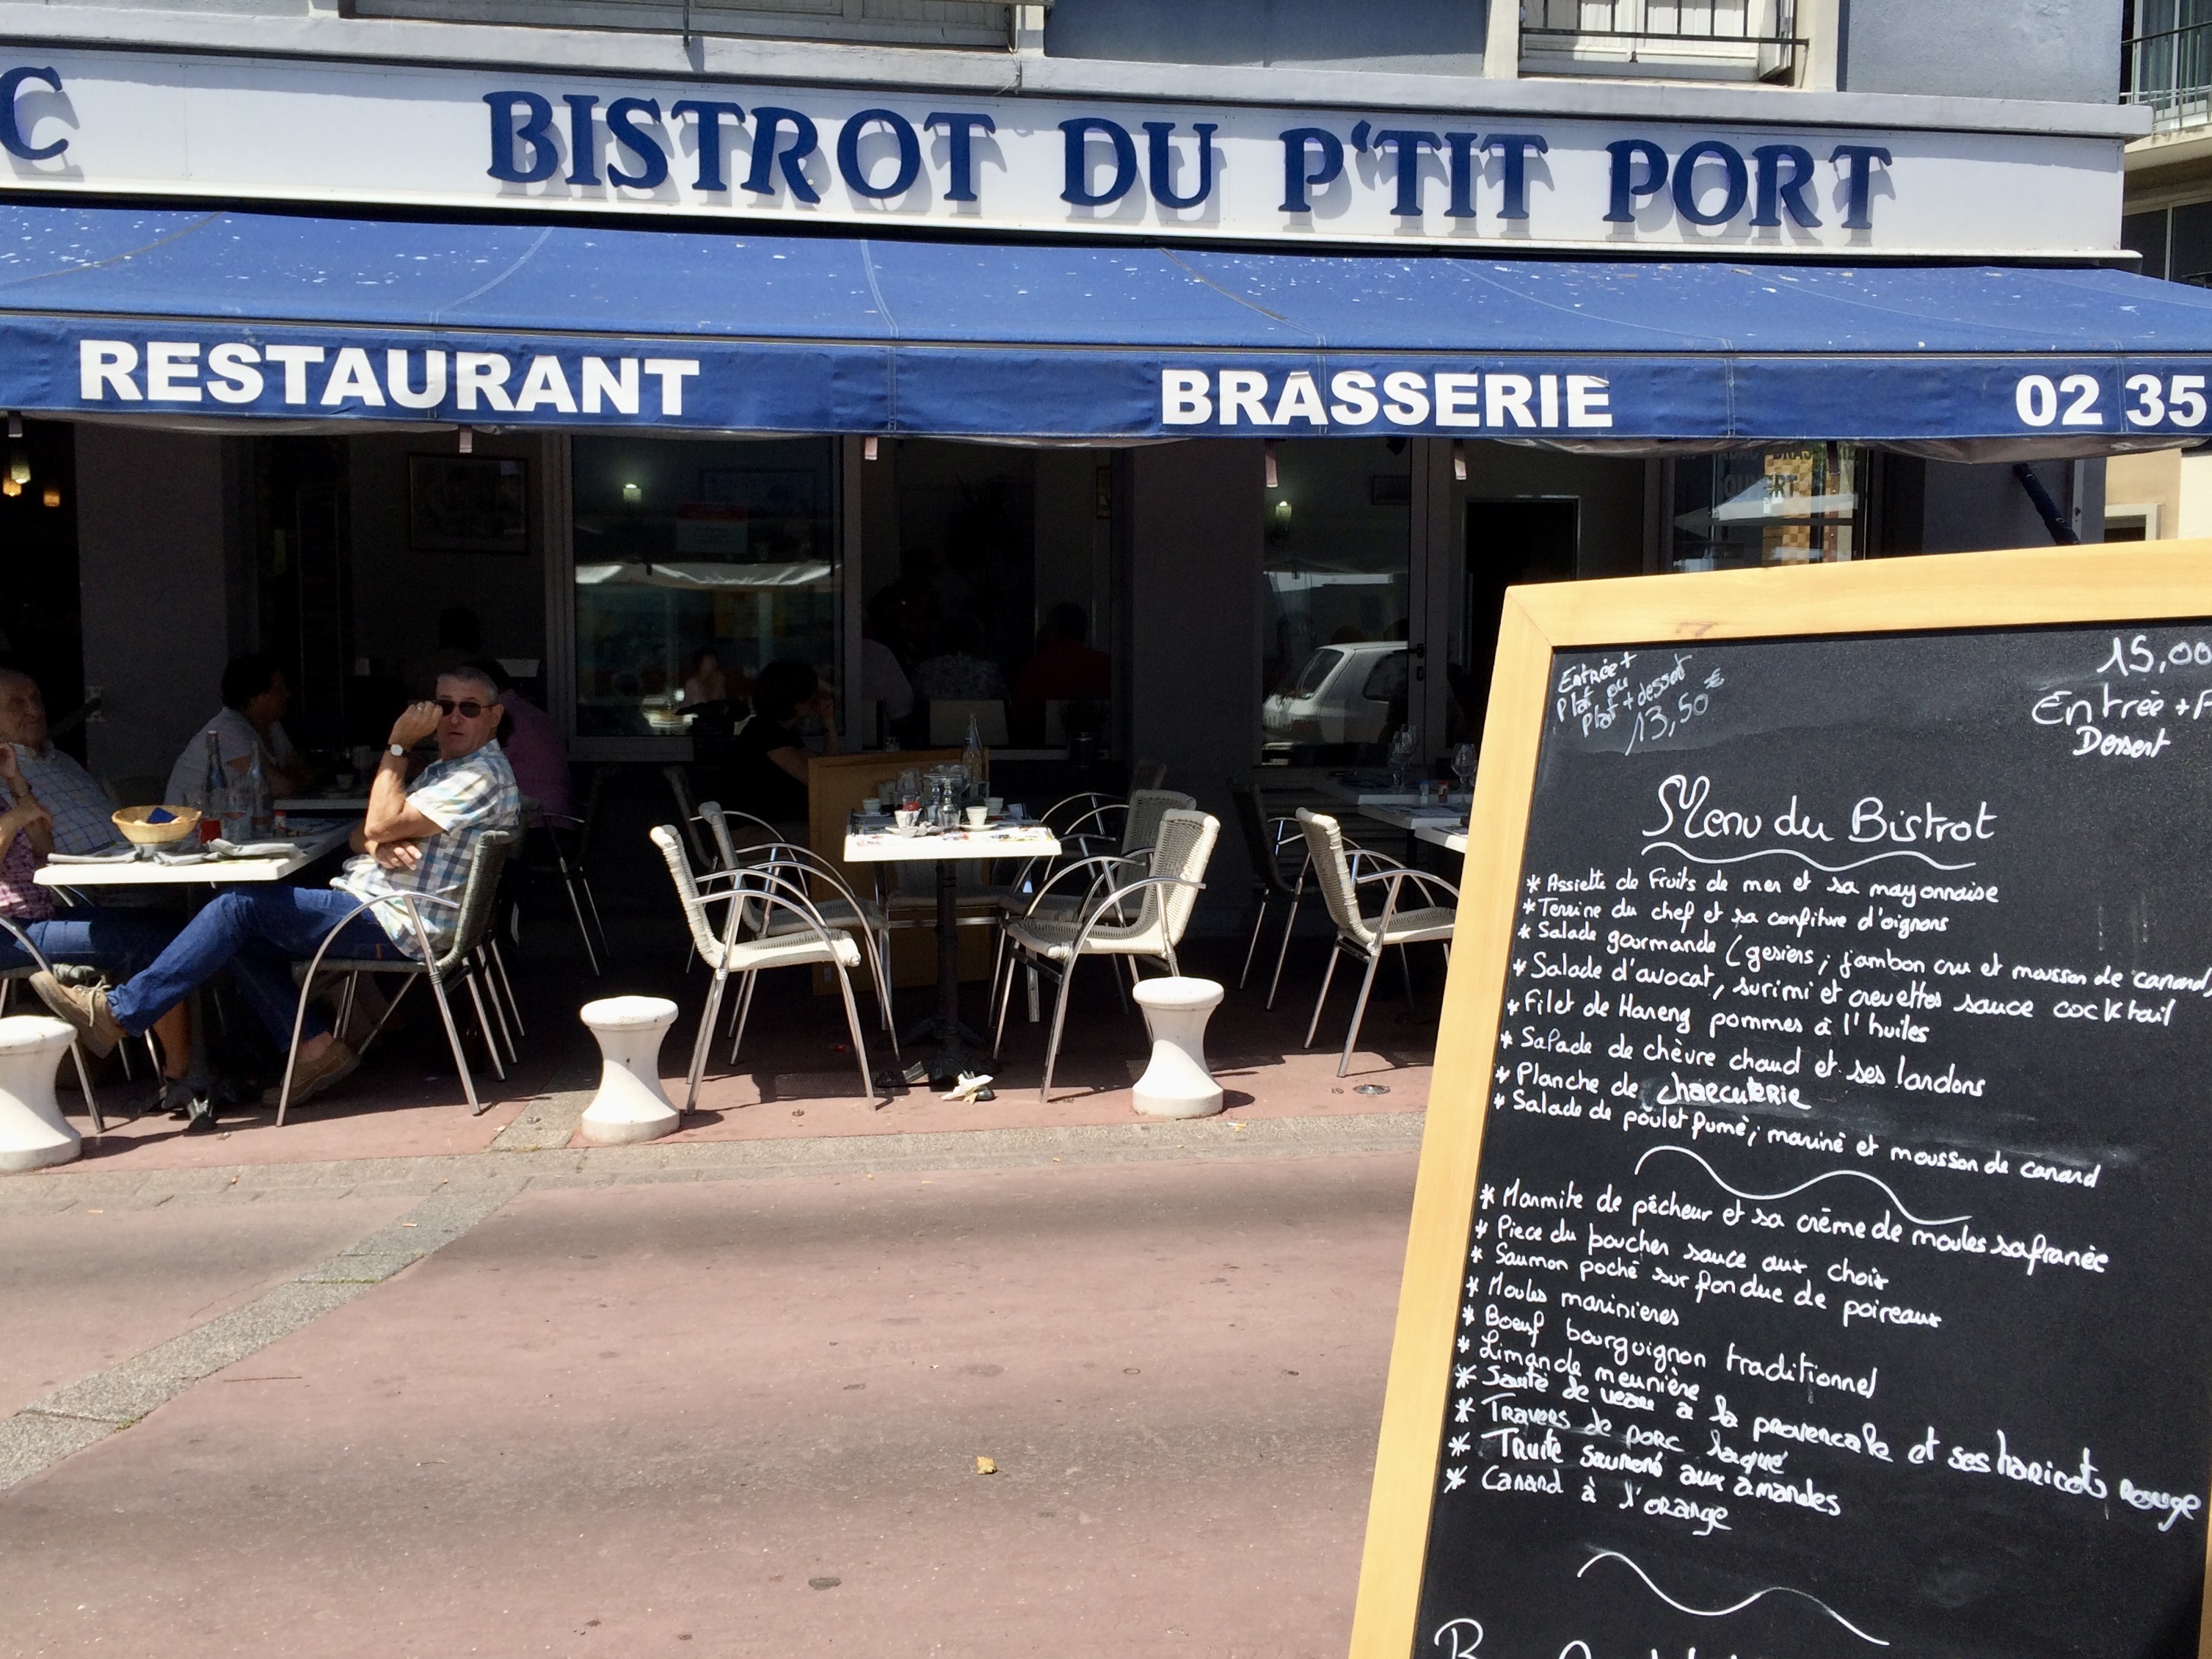 C
BISTROT DU P'TIT PORT
RESTAURANT
BRASSERIE
02 35
Entrée +
Plat ou
Plat + dessert
13,50 €
15,00
Entrée + P
Dessert
Menu du Bistrot
* Assiette de Fruits de mer et sa mayonnaise
* Terrine du chef et sa confiture d'oignons
* Salade gourmande (gesiers, jambon cru et mousson de canard)
* Salade d'avocat, surimi et crevettes sauce cocktail
* Filet de Hareng pommes à l'huiles
* Salade de chèvre chaud et ses lardons
* Planche de charcuterie
* Salade de poulet fumé, mariné et mousson de canard
* Marmite de pêcheur et sa crème de moules safranée
* Piece du boucher sauce aux choix
* Saumon poché sur fondue de poireaux
* Moules marinieres
* Boeuf bourguignon traditionnel
* Limande meunière
* Sauté de veau à la provencale et ses haricots rouge
* Travers de porc laqué
* Truite saumoné aux amandes
* Canard à l'orange